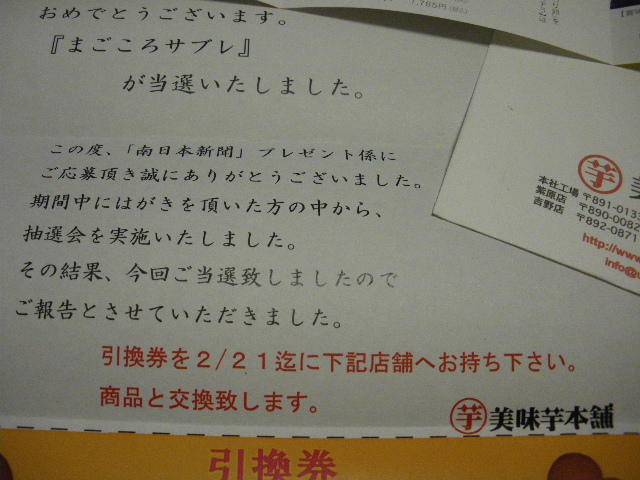 おめでとうございます。
『まごころサブレ』
が当選いたしました。
この度、「南日本新聞」プレゼント係に
ご応募頂き誠にありがとうございました。
期間中にはがきを頂いた方の中から、
抽選会を実施いたしました。
その結果、今回ご当選致しましたので
ご報告とさせていただきました。
引換券を2/21迄に下記店舗へお持ち下さい。
商品と交換致します。
芋 美味芋本舗
引換券
1,785円(税込)
芋 美
本社工場 〒891-013
紫原店 〒890-0082
吉野店 〒892-0871
http://www
info@